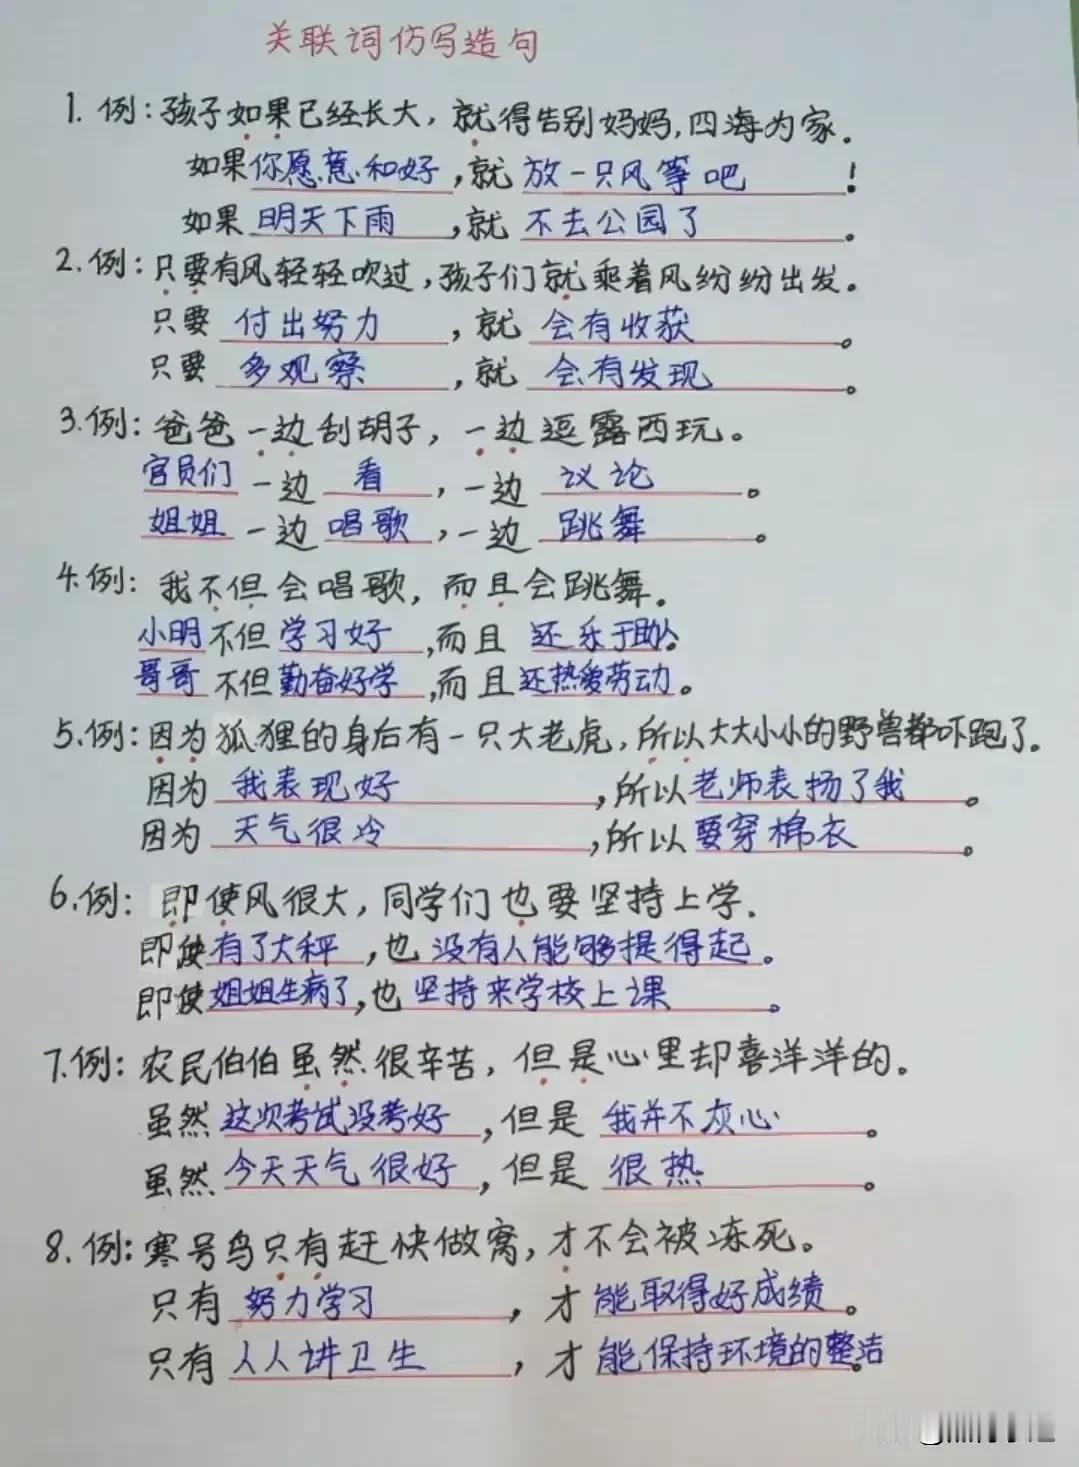 关联词仿写造句
1. 例：孩子如果已经长大，就得告别妈妈，四海为家。
如果你愿意和好，就放一只风筝吧！
如果明天下雨，就不去公园了。
2. 例：只要有风轻轻吹过，孩子们就乘着风纷纷出发。
只要付出努力，就会有收获。
只要多观察，就会有发现。
3. 例：爸爸一边刮胡子，一边逗露西玩。
官员们一边看，一边议论。
姐姐一边唱歌，一边跳舞。
4. 例：我不但会唱歌，而且会跳舞。
小明不但学习好，而且还乐于助人。
哥哥不但勤奋好学，而且还热爱劳动。
5. 例：因为狐狸的身后有一只大老虎，所以大大小小的野兽都吓跑了。
因为我表现好，所以老师表扬了我。
因为天气很冷，所以要穿棉衣。
6. 例：即使风很大，同学们也要坚持上学.
即使有了大秤，也没有人能够提得起。
即使姐姐生病了，也坚持来学校上课。
7. 例：农民伯伯虽然很辛苦，但是心里却喜洋洋的。
虽然这次考试没考好，但是我并不灰心。
虽然今天天气很好，但是很热。
8. 例：寒号鸟只有赶快做窝，才不会被冻死。
只有努力学习，才能取得好成绩。
只有人人讲卫生，才能保持环境的整洁。